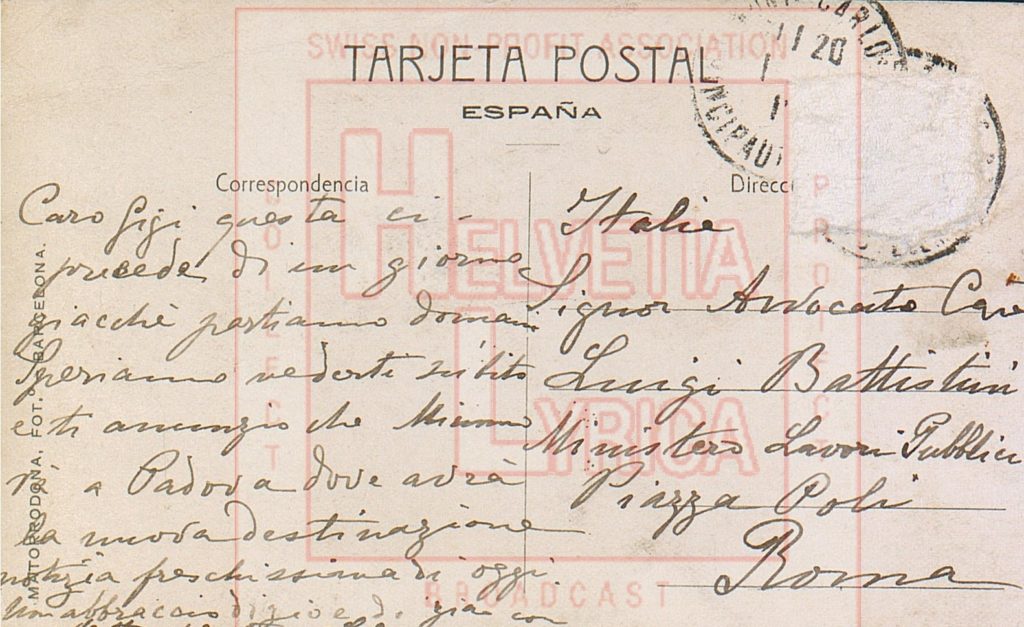 SWISS NON PROFIT ASSOCIATION
TARJETA POSTAL
ESPAÑA
Correspondencia
Direcc
CARLO
11 20
NCIPAU
MATORRODONA, FOT. BARCELONA.
HELVETIA
LYRICA
COLLECT
PRODUCT
BROADCAST
Caro Gigi questa ci-
precede di un giorno
giacchè partiamo domani
Speriamo vederti subito
e ti annunzio che Mimmo
a Padova dove avrà
la nuova destinazione
notizia freschissima di oggi
Un abbraccio di zio e di zia con
Italie
Signor Avvocato Cav
Luigi Battistini
Ministero Lavori Pubblici
Piazza Poli
Roma